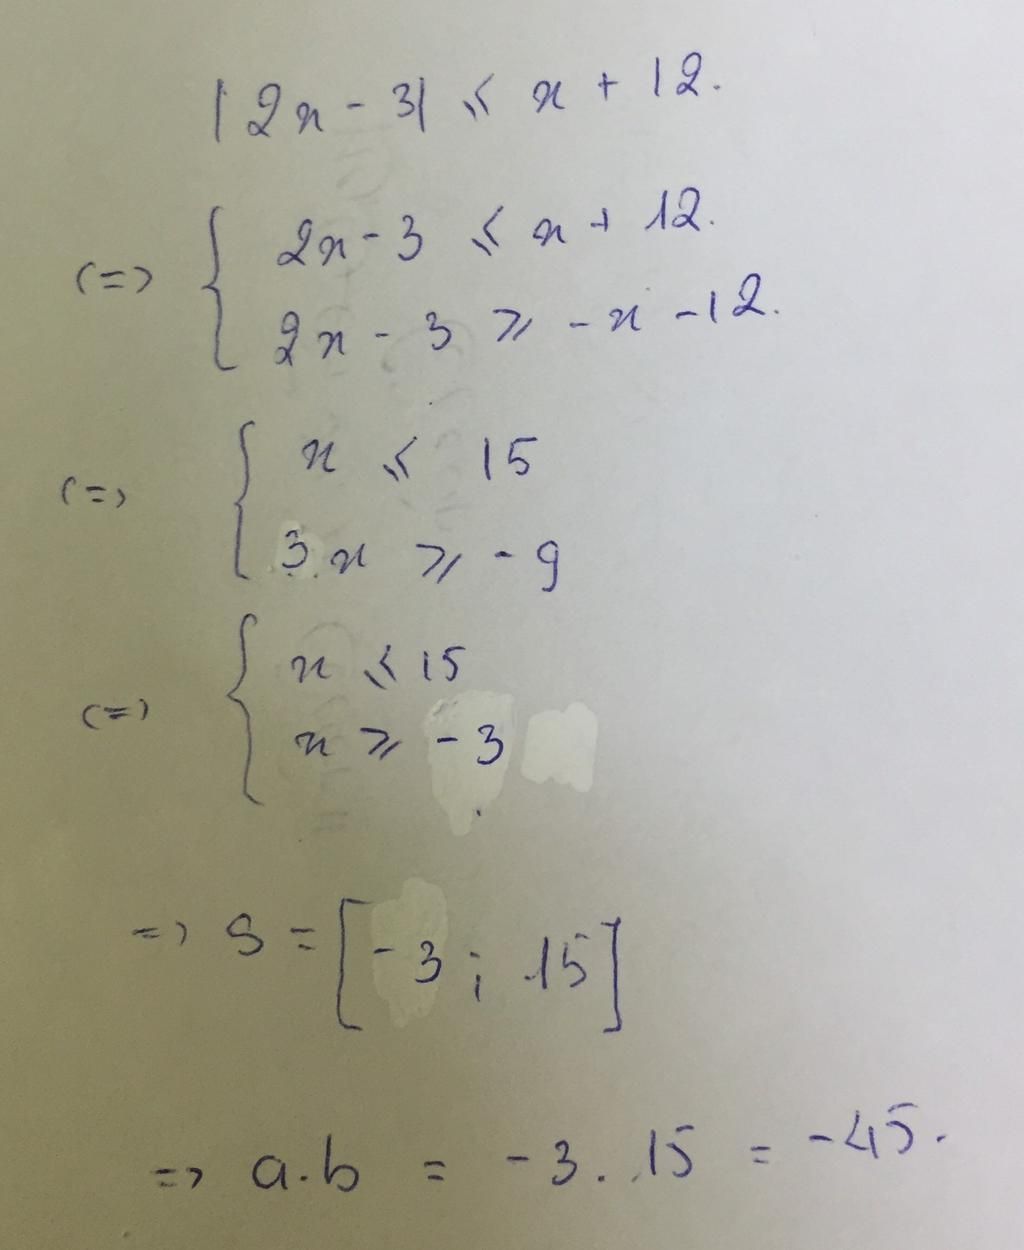 |2x - 3| ⩽ x + 12.
(=> { 2x - 3 ⩽ x + 12.
2x - 3 ⩾ -x - 12.
(=> { x ⩽ 15
3x ⩾ -9
(=> { x ⩽ 15
x ⩾ -3
=> S = [-3 ; 15]
=> a.b = -3 . 15 = -45.